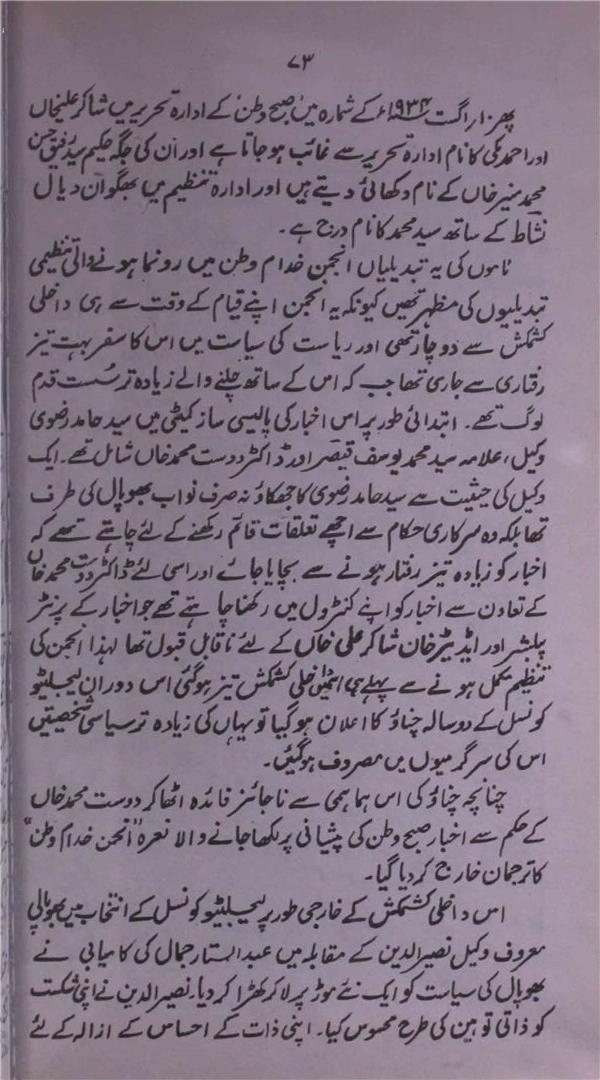 ۷۳
پھر ۱۰ر اگست ۱۹۳۴ء کے شمارہ میں صبح وطن کے ادارہ تحریر میں شاکر علیخاں
اور احمد مکی کا نام ادارہ تحریر سے غائب ہو جاتا ہے اور ان کی جگہ حکیم سید رفیق حسن
محمد منیر خاں کے نام دکھائی دیتے ہیں اور ادارہ تنظیم میں بھگوان دیال
نشاط کے ساتھ سید محمد کا نام درج ہے۔
ناموں کی یہ تبدیلیاں انجمن خدام وطن میں رونما ہونے والی تنظیمی
تبدیلیوں کی مظہر تھیں کیونکہ یہ انجمن اپنے قیام کے وقت سے ہی داخلی
کشمکش سے دوچار تھی اور ریاست کی سیاست میں اس کا سفر بہت تیز
رفتاری سے جاری تھا جب کہ اس کے ساتھ چلنے والے زیادہ تر سست قدم
لوگ تھے۔ ابتدائی طور پر اس اخبار کی پالیسی ساز کمیٹی میں سید حامد رضوی
وکیل، علامہ سید محمد یوسف قیصر اور ڈاکٹر دوست محمد خاں شامل تھے۔ ایک
وکیل کی حیثیت سے سید حامد رضوی کا جھکاؤ نہ صرف نواب بھوپال کی طرف
تھا بلکہ وہ سرکاری حکام سے اچھے تعلقات قائم رکھنے کے لئے چاہتے تھے کہ
اخبار کو زیادہ تیز رفتار ہونے سے بچایا جائے اور اسی لئے ڈاکٹر دوست محمد خاں
کے تعاون سے اخبار کو اپنے کنٹرول میں رکھنا چاہتے تھے جو اخبار کے پرنٹر
پبلشر اور ایڈیٹر خان شاکر علی خاں کے لئے ناقابل قبول تھا لہٰذا انجمن کی
تنظیم مکمل ہونے سے پہلے ہی اسمیں داخلی کشمکش تیز ہو گئی اس دوران لیجسلیٹو
کونسل کے دوسالہ چناؤ کا اعلان ہو گیا تو یہاں کی زیادہ تر سیاسی شخصیتیں
اس کی سرگرمیوں میں مصروف ہو گئیں۔
چنانچہ چناؤ کی اس ہماہمی سے ناجائز فائدہ اٹھا کر دوست محمد خاں
کے حکم سے اخبار صبح وطن کی پیشانی پر لکھا جانے والا نعرہ "انجمن خدام وطن"
کا ترجمان خارج کر دیا گیا۔
اس داخلی کشمکش کے خارجی طور پر لیجسلیٹو کونسل کے انتخاب میں بھوپالی
معروف وکیل نصیر الدین کے مقابلہ میں عبد الستار جمال کی کامیابی نے
بھوپال کی سیاست کو ایک نئے موڑ پر لا کر کھڑا کر دیا۔ نصیر الدین نے اپنی شکست
کو ذاتی توہین کی طرح محسوس کیا۔ اپنی ذات کے احساس کے ازالہ کے لئے